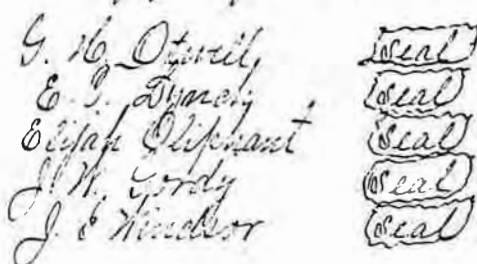 G. H. Otwell, Seal
E. J. Lynch Seal
Elijah Oliphant Seal
J. W. Gordy Seal
J. E Windsor Seal